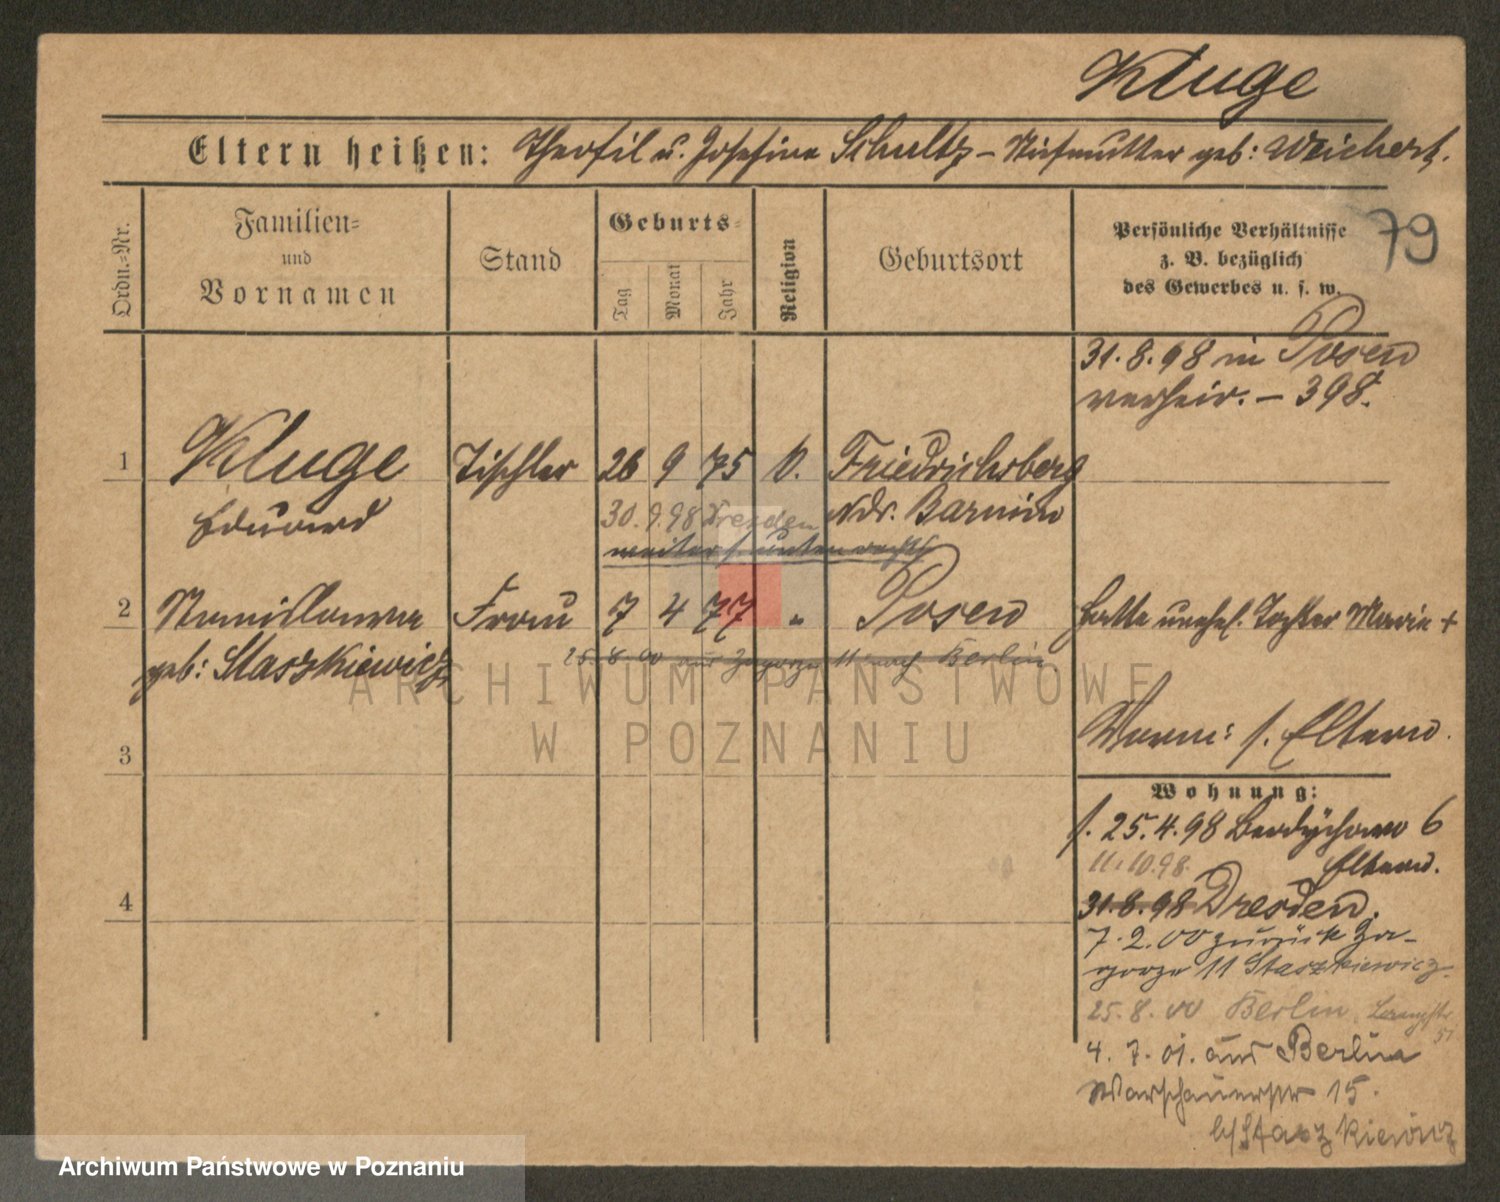 Kluge
Eltern heißen: Theofil u. Josefina Schultz – Stiefmutter geb: Weichert.
79
Ordn.-Nr.
Familien-
und
Vornamen
Stand
Geburts-
Tag
Monat
Jahr
Religion
Geburtsort
Persönliche Verhältnisse
z. B. bezüglich
des Gewerbes u. s. w.
31.8.98 in Posen
verheir. – 398.
1 Kluge Tischler 26 9 75 Friedrichsberg
Eduard Ndr. Barnim
30.9.98 Dresden
weiter s. unten rechts
2 Stanislawa Frau 7 4 77 " Posen hatte unehel. Tochter Marie +
geb: Staszkiewicz
25 8 00 aus Zagorze 11 nach Berlin
3
s. Eltern.
Wohnung:
s. 25.4.98 Berdychowo 6
11.10.98. Eltern.
31.8.98 Dresden.
4
7.2.00 zurück Za-
gorze 11 Staszkiewicz.
25.8.00 Berlin
51
4.7.01. aus Berlin
Warschauerstr 15.
b/Staszkiewicz
ARCHIWUM PAŃSTWOWE
W POZNANIU
Archiwum Państwowe w Poznaniu